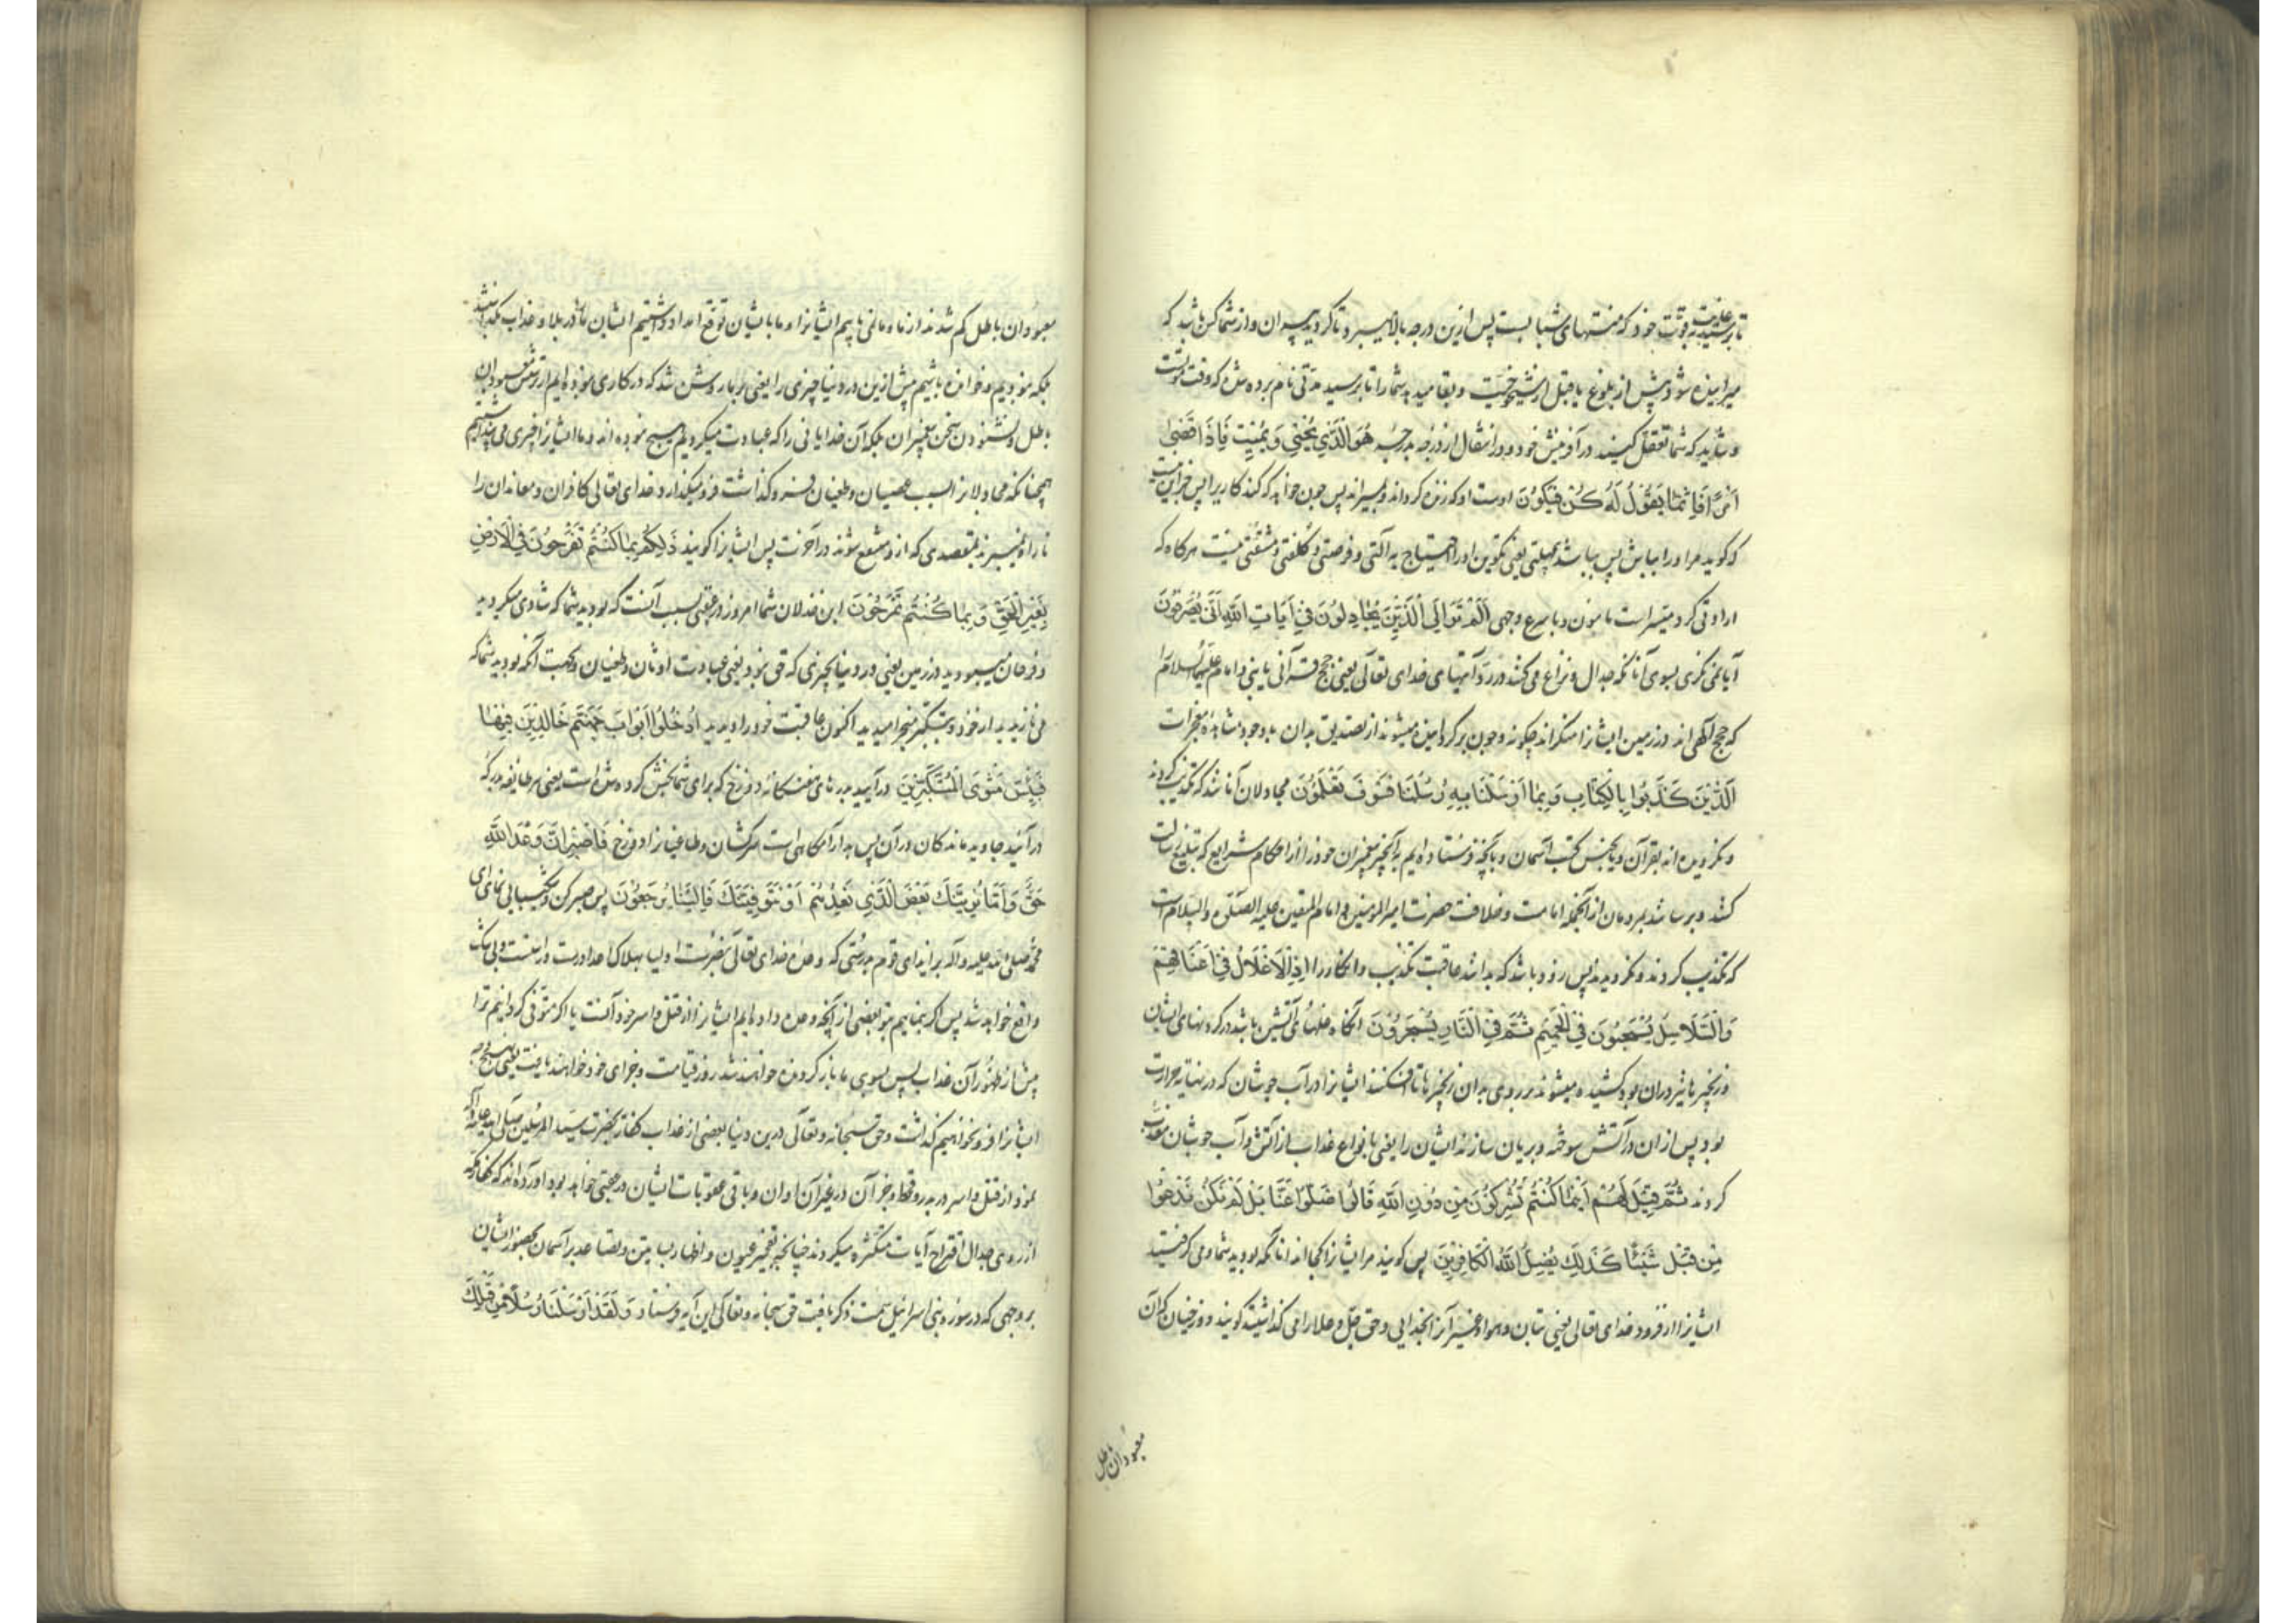 تا برسید بغایت قوت خود که منتهای شبابست پس ازین درجه بالا میبرد تا گردید پیران و از شما کس باشد که
میرانیده شود پیش از بلوغ یا قبل از شیخوخیت و بقا میدهد شما را تا برسید مدتی نام برده شده که وقت موتست
و شاید که شما تعقل کنید در آفرینش خود و در انتقال از درجه بدرجه هُوَ الَّذِي يُحْيِي وَيُمِيتُ فَإِذَا قَضَىٰ
أَمْرًا فَإِنَّمَا يَقُولُ لَهُ كُن فَيَكُونُ اوست او که زنده گرداند و بمیراند پس چون خواهد که کند کاریرا پس جز این نیست
که گوید مر او را بباش پس بباشد بی مهلتی یعنی تکوین او را احتیاج به آلتی و فرصتی و کلفتی و مشقتی نیست هرگاه که
ارادتی کرد میسر است با هون و باسرع وجهی أَلَمْ تَرَ إِلَى الَّذِينَ يُجَادِلُونَ فِي آيَاتِ اللَّهِ أَنَّىٰ يُصْرَفُونَ
آیا نمی نگری بسوی آنانکه جدال و نزاع می کنند در رد آیتهای خدای تعالی یعنی حجج قرآنی یا بنی و امام علیهما السلام را
که حجج الهی اند در زمین ایشانرا منکراند چگونه و چون برگردانیده میشوند از تصدیق بدان با وجود مشاهده معجزات
الَّذِينَ كَذَّبُوا بِالْكِتَابِ وَبِمَا أَرْسَلْنَا بِهِ رُسُلَنَا فَسَوْفَ يَعْلَمُونَ مجادلان آنانند که تکذیب کردند
و نگرویده اند بقرآن و یا بجنس کتب آسمان و بآنچه فرستاده ایم به آنچیز پیغمبران خود را از احکام شرایع که تبلیغ رسالت
کنند و برسانند بمردمان از آنجمله امامت و خلافت حضرت امیرالمومنین و امام المتقین علیه الصلوة والسلام است
که تکذیب کردند و نگرویدند پس زود باشد که بدانند عاقبت تکذیب و انکار را إِذِ الْأَغْلَالُ فِي أَعْنَاقِهِمْ
وَالسَّلَاسِلُ يُسْحَبُونَ فِي الْحَمِيمِ ثُمَّ فِي النَّارِ يُسْجَرُونَ آنگاه غلهای آتشین باشد در گردنهای ایشان
و زنجیرها نیز در آن بود کشیده میشوند بر روی بدان زنجیرها تا افکنند ایشانرا در آب جوشان که در نهایة حرارت
بود پس از ان در آتش سوخته و بریان سازند ایشان را یعنی بانواع عذاب از آتش و آب جوشان معذب
گردند ثُمَّ قِيلَ لَهُمْ أَيْنَمَا كُنتُمْ تُشْرِكُونَ مِن دُونِ اللَّهِ قَالُوا ضَلُّوا عَنَّا بَل لَّمْ نَكُن نَّدْعُوا
مِن قَبْلُ شَيْئًا كَذَٰلِكَ يُضِلُّ اللَّهُ الْكَافِرِينَ پس گویند مر ایشانرا کجا اند آنانکه بودید شما و می گرفتید
ایشانرا از فرود خدای تعالی یعنی بتان و هوا و غیر آنرا بخدایی و حق جل و علا را می گذاشتید گویند دوزخیان که آن
معبودان باطل
معبودان باطل گم شدند از ما و ما نمی یابیم ایشانرا و ما بایشان توقع امداد داشتیم ایشان ما را در بلا و عذاب بگذاشتند
بلکه نبودیم و خوانده باشیم پیش ازین در دنیا چیزی را یعنی بر ما روشن شد که در کاری نبوده ایم از پرستش معبودان
باطل و نشنودن سخن پیغمبران بلکه آن خدایانی را که عبادت میکردیم هیچ نبوده اند و ما ایشانرا چیزی می پنداشتیم
همچنانکه مجادلانرا بسبب عصیان و طغیان فرو گذاشت فرو میگذارد خدای تعالی کافران و معاندان را
تا راه نمیبرند بمقصدی که ازو منتفع شوند در آخرت پس ایشانرا گویند ذَٰلِكُم بِمَا كُنتُمْ تَفْرَحُونَ فِي الْأَرْضِ
بِغَيْرِ الْحَقِّ وَبِمَا كُنتُمْ تَمْرَحُونَ این خذلان شما امروز در عقبی بسبب آنست که بودید شما که شادی میکردید
و فرحان میبودید در زمین یعنی در دنیا بچیزی که حق نبود یعنی عبادت اوثان و طغیان و بجهت آنکه بودید شما که
می نازیدید از خود و بتکبر میخرامیدید اکنون عاقبت خود را دیدید ادْخُلُوا أَبْوَابَ جَهَنَّمَ خَالِدِينَ فِيهَا
فَبِئْسَ مَثْوَى الْمُتَكَبِّرِينَ درآیید بدرهای هفتگانه دوزخ که برای شما بخش کرده شده است یعنی هر طایفه بدرکه
درآئید جاوید ماندگان در آن پس بد آرامگاهی است سرکشان و طاغیانرا دوزخ فَاصْبِرْ إِنَّ وَعْدَ اللَّهِ
حَقٌّ وَإِمَّا نُرِيَنَّكَ بَعْضَ الَّذِي نَعِدُهُمْ أَوْ نَتَوَفَّيَنَّكَ فَإِلَيْنَا يُرْجَعُونَ پس صبر کن و شکیبایی نمای ای
محمد صلی الله علیه و آله بر ایذای قوم بدرستی که وعده خدای تعالی بنصرت اولیا بهلاک اعدا درست و راستست و بی شک
واقع خواهد شد پس اگر بنماییم بتو بعضی از آنچه وعده داده ایم ایشانرا از قتل و اسر خود آنست یا اگر متوفی گردانیم ترا
پیش از ظهور آن عذاب پس بسوی ما بازگردانیده خواهند شد روز قیامت و جزای خود خواهند یافت یعنی بهیچ وجه
ایشانرا فرو نخواهیم گذاشت و حق سبحانه و تعالی درین دنیا بعضی از عذاب کفار بحضرت سید المرسلین صلی الله علیه و آله
نمود از قتل و اسر در بدر و قحط و جز آن در غیر آن اوان و باقی عقوبات ایشان در عقبی خواهد بود آورده اند که کفار مکه
از روی جدال اقتراح آیات متکثره میکردند چنانچه تفجیر عیون و اظهار بساتین و تصاعد بر آسمان بحضور ایشان
بر وجهی که در سوره بنی اسرائیل سمت ذکر یافت حق سبحانه و تعالی این آیه فرستاد وَلَقَدْ أَرْسَلْنَا رُسُلًا مِّن قَبْلِكَ